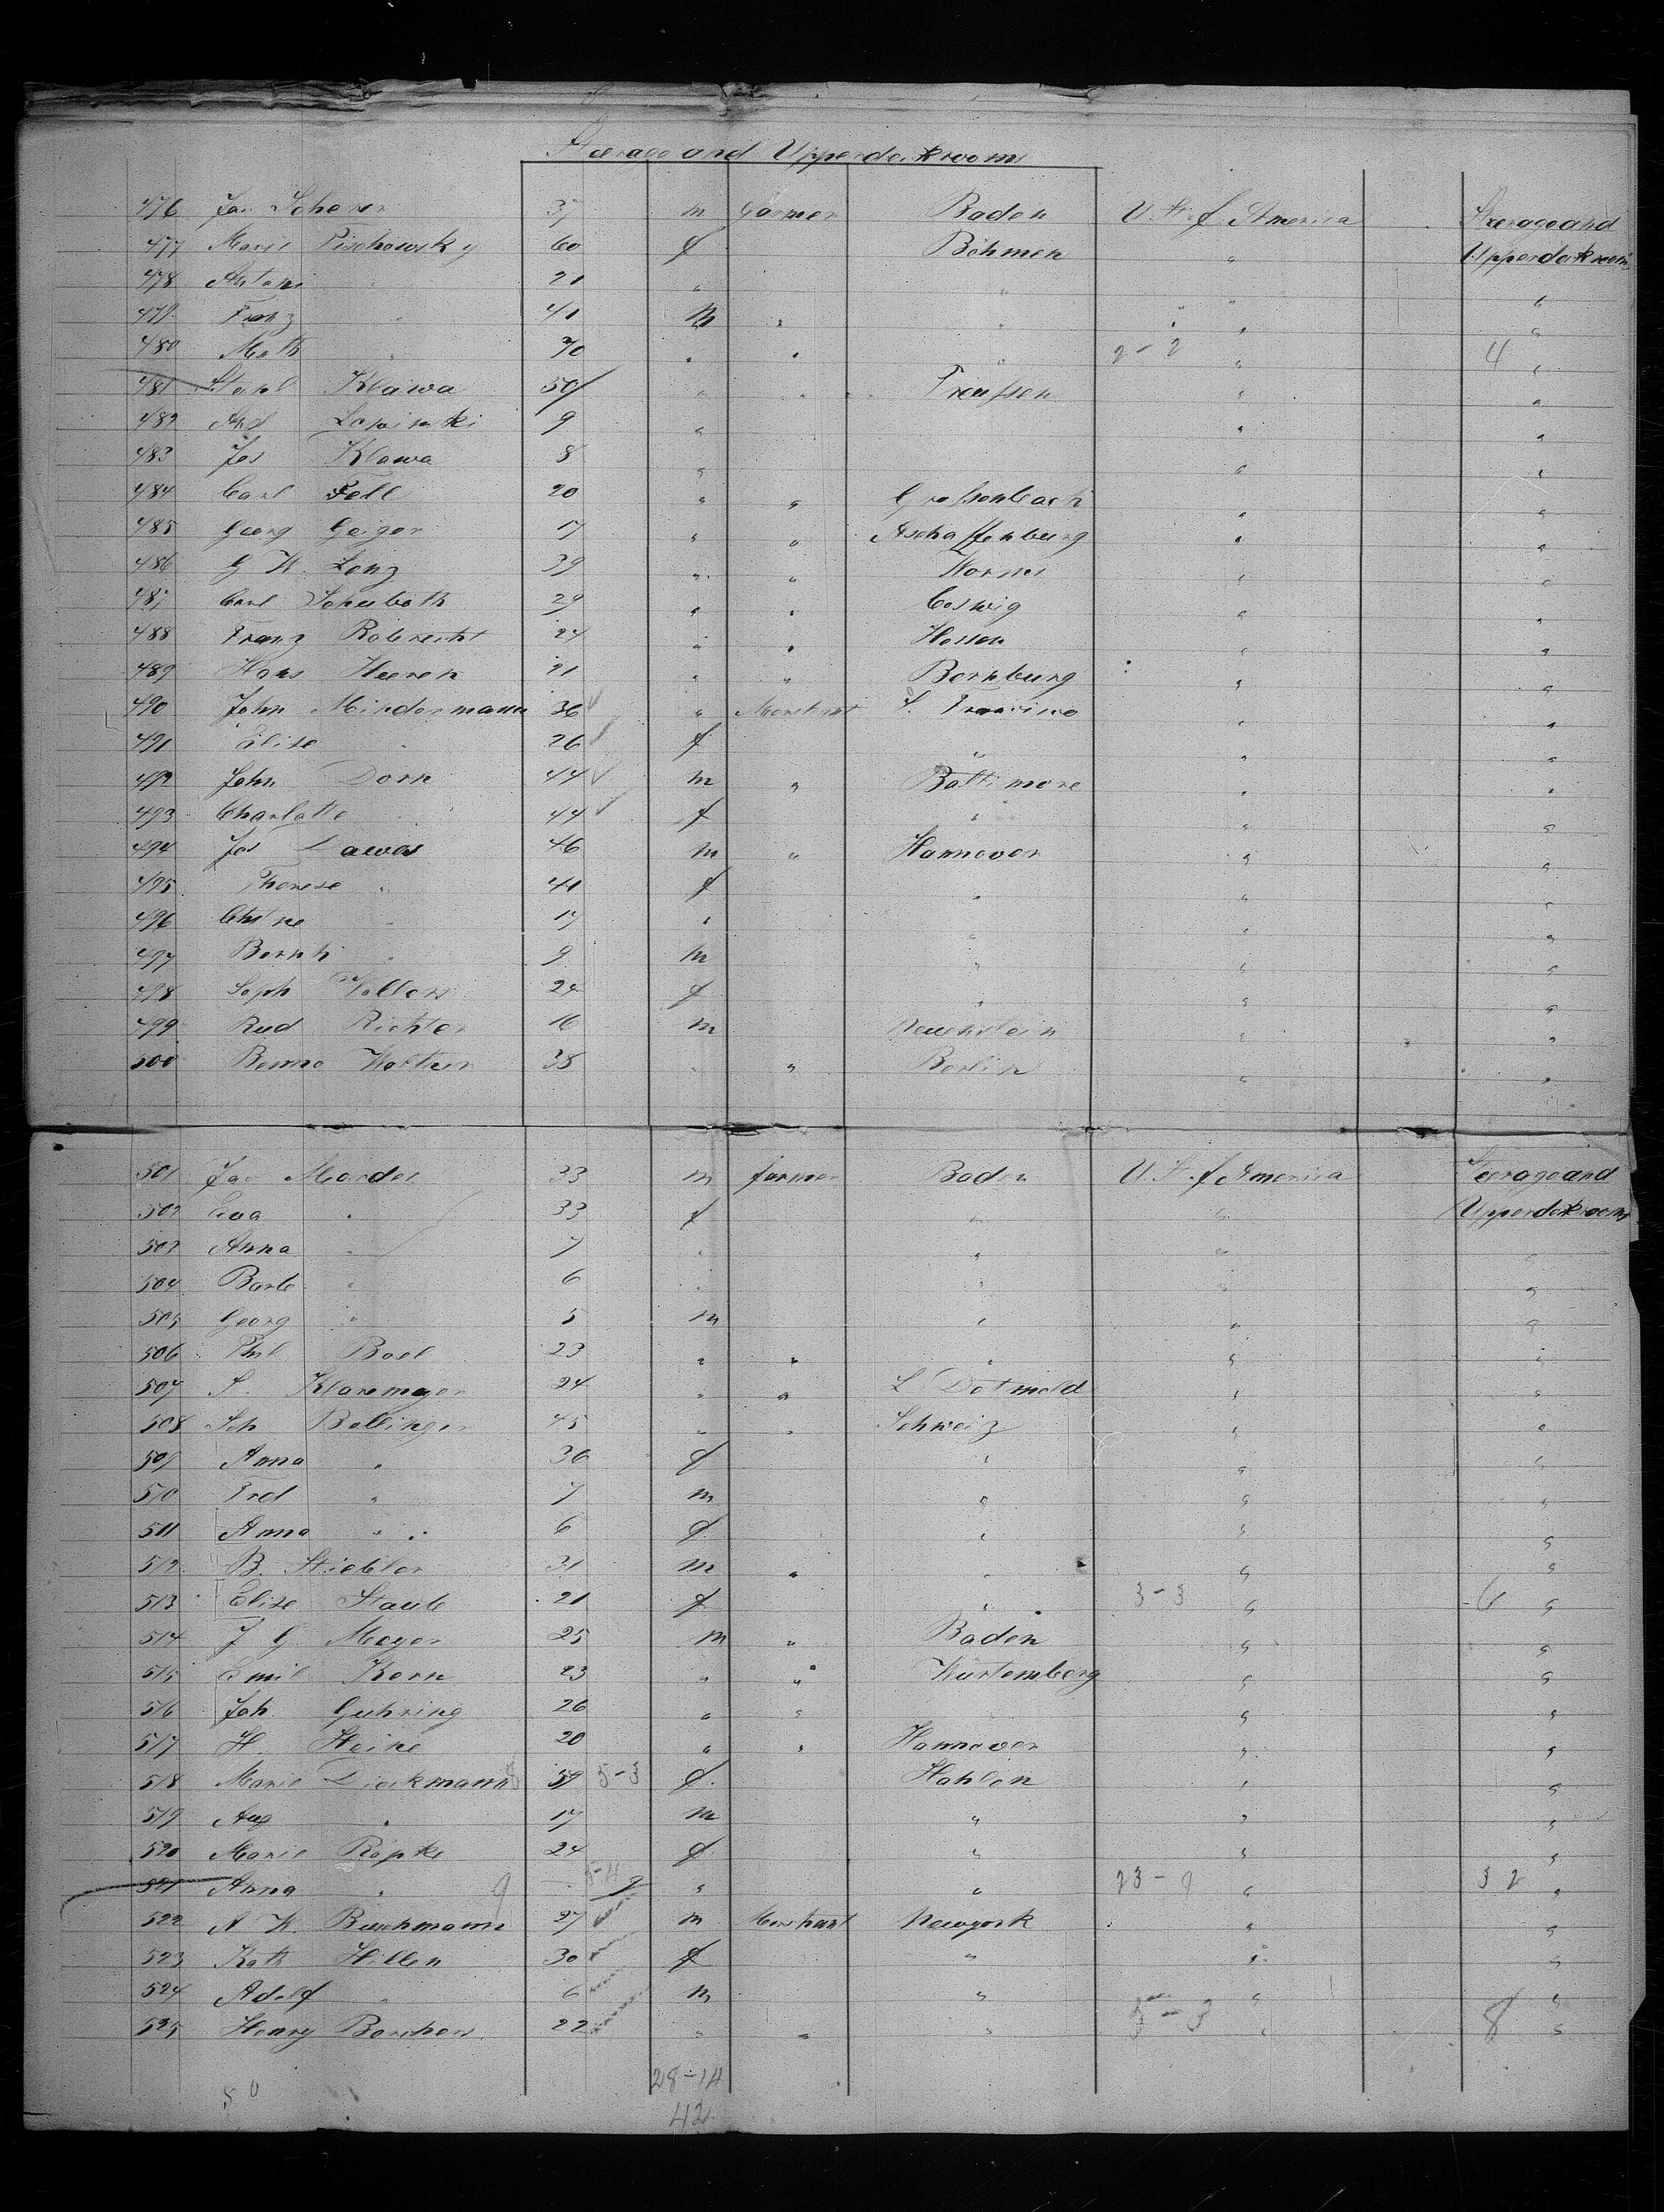 Steerage and Upperdeckrooms
476 Jac Scherer 37 m farmer Baden U. St. of America Steerage and
477 Marie Pischowsky 60 f Böhmen " Upperdeckrooms
478 Antoni " 21 " " " "
479 Franz " 41 m " " " "
480 Math " 70 " " " 2-2 " 4 "
481 Klawa 50 " " Preussen " "
482 And 9 " " "
483 Jos Klawa 8 " " "
484 Carl Fell 20 " " Grossenbach " "
485 Georg Geiger 17 " " Aschaffenburg " "
486 G W. Lenz 39 " " Worms " "
487 Carl Schuboth 29 " " Coswig " "
488 Franz Robrecht 24 " " Hessen " "
489 Hans Heeren 21 " " Bernburg " "
490 John Mindermann 36 " Merchant S. " "
491 Elise " 26 f " " "
492 John Dorn 44 m " Baltimore " "
493 Charlotte " 44 f " " "
494 Jos Lawes 46 m " Hannover " "
495 Therese " 41 f " " "
496 Chstne " 17 " " " "
497 Bernh " 9 m " " "
498 Soph Wollers 24 f " " "
499 Rud Richter 16 m " "
500 Benno Walther 38 " " Berlin " "
501 Jac Mardes 33 m farmer Baden U. St. of America Steerage and
502 Eva " 33 f " " Upperdeckrooms
503 Anna " 7 " " " "
504 Barb " 6 " " " "
505 Georg " 5 m " " "
506 Phil Basl 23 " " " " "
507 S. Klaremeyer 24 " " L Detmold " "
508 Joh Bollinger 45 " " Schweiz " "
509 Anna " 36 f " " "
510 Fred " 7 m " " "
511 Anna " 6 f " " "
512 B. Stiebler 31 m " " " "
513 Elise Staub 21 f " 3-3 " 6 "
514 J G Meyer 25 m " Baden " "
515 Emil Kern 23 " " Würtemberg " "
516 Joh Guhring 26 " " " "
517 H Heine 20 " " Hannover " "
518 Marie Dieckmann 59 5-3 f Hahlen " "
519 Aug " 17 m " " "
520 Marie Röpke 24 f " " "
521 Anna " 9 5-4 9 " " 23-9 " 32 "
522 A W. Buschmann 27 m Merchant Newyork " "
523 Kath Hillen 30 f " " "
524 Adolf " 6 m " " "
525 Henry Borchers 22 " " " 5-3 " 8 "
50 28-14
42